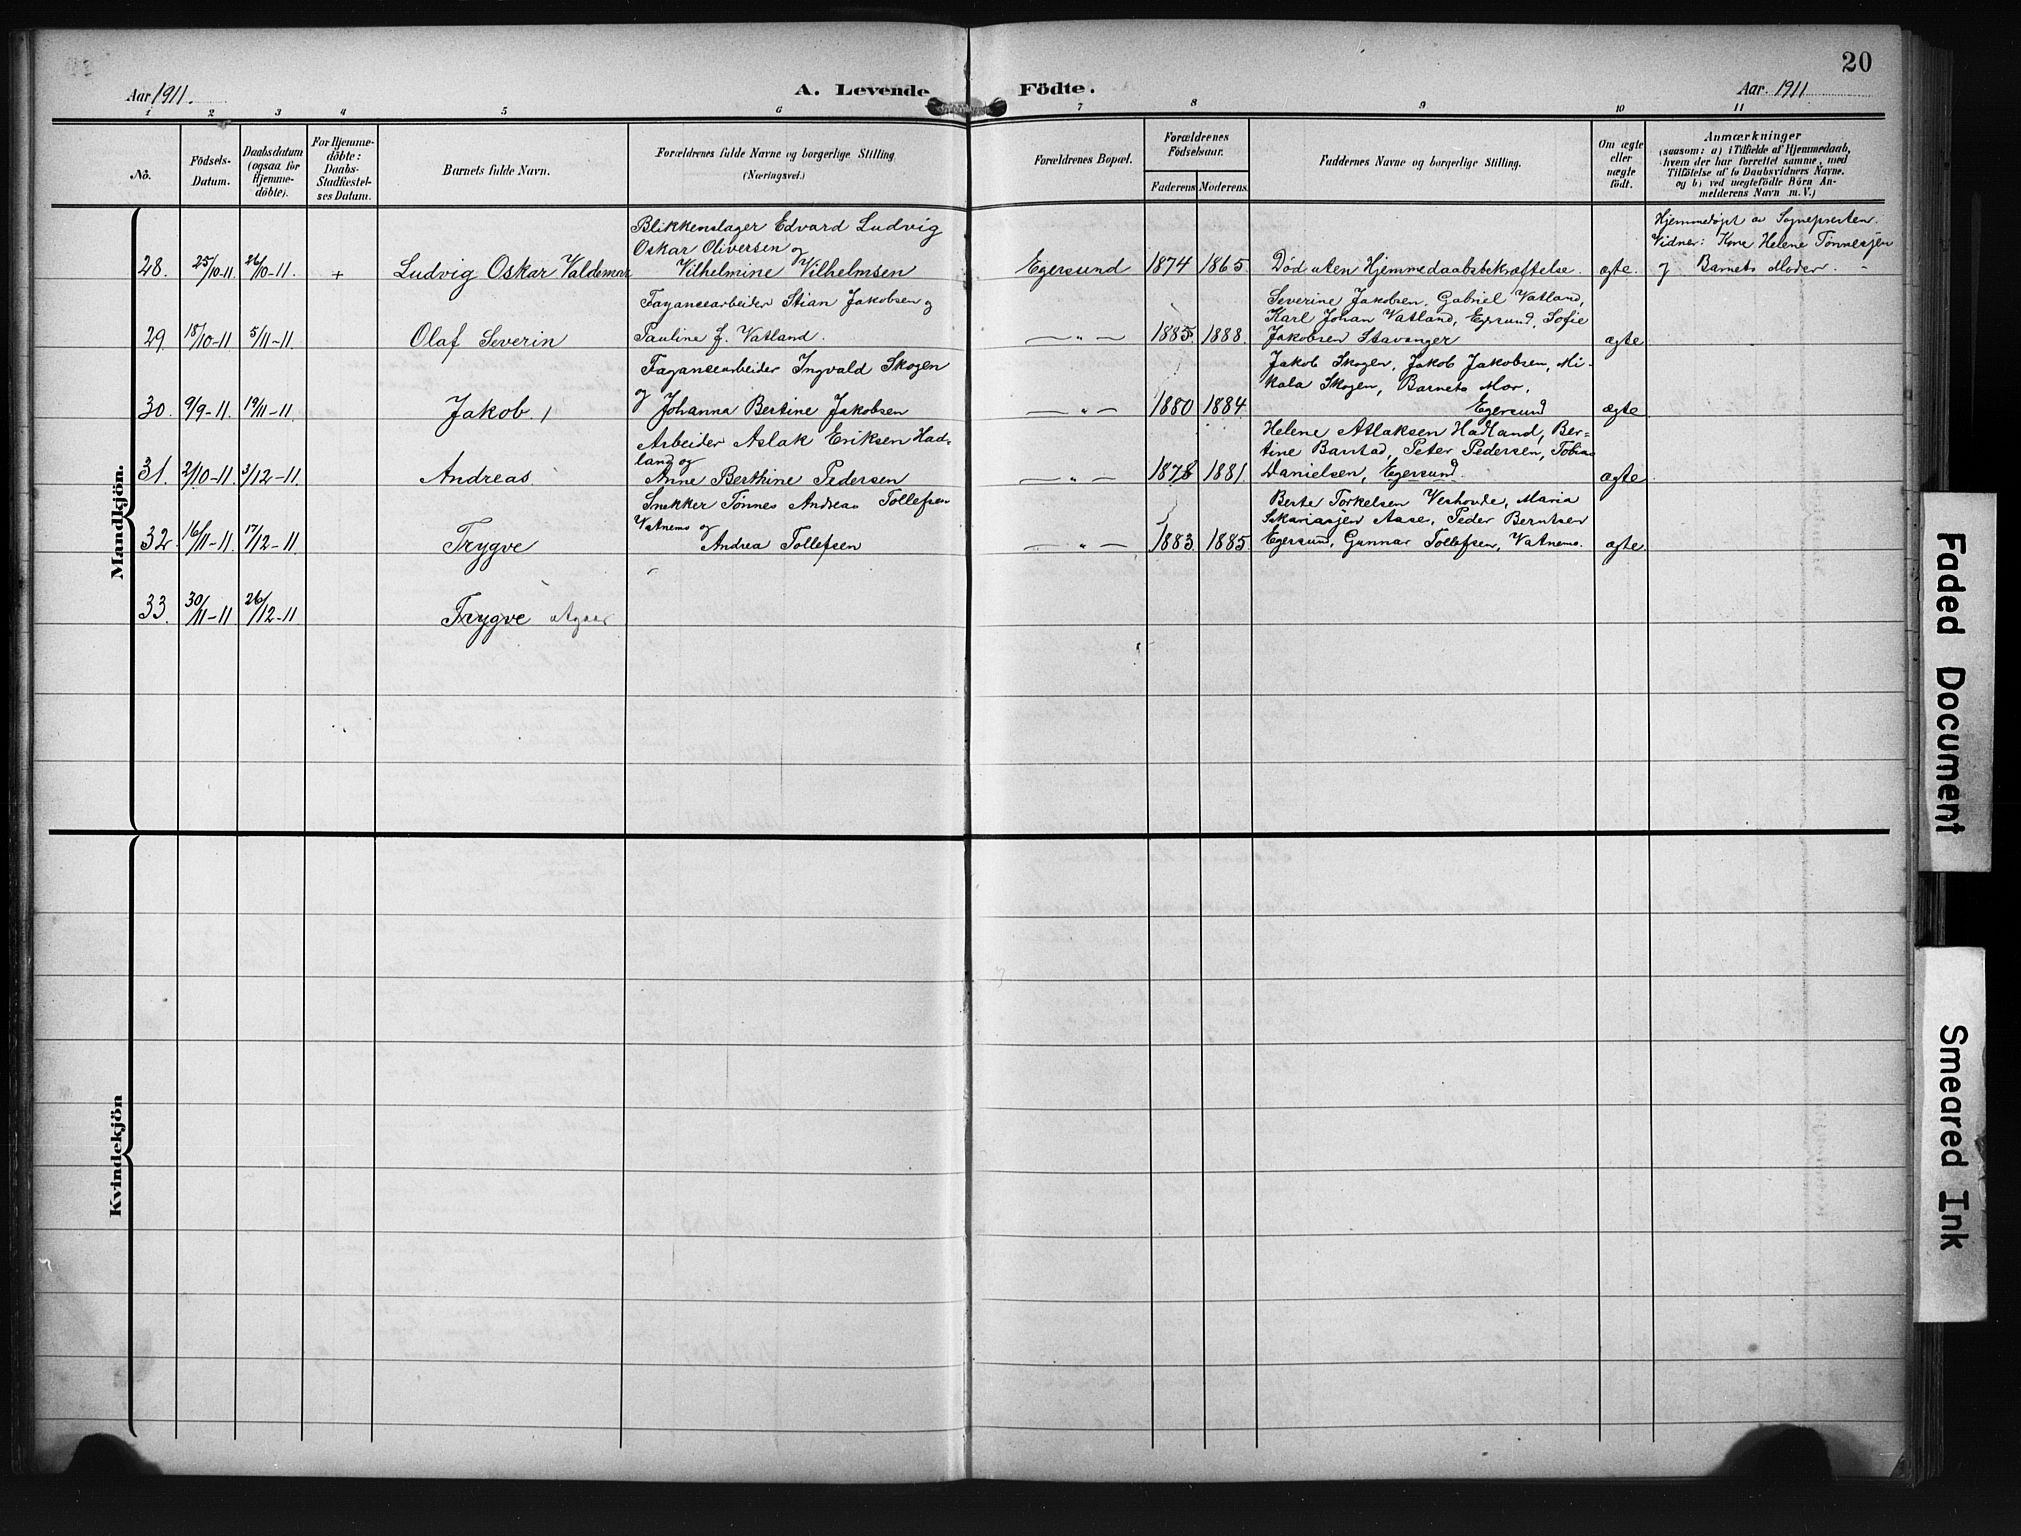 20
Aar 1911.
A. Levende Födte.
Aar. 1911
1 2 3 4 5 6 7 8 9 10 11
No.
Födsels-
Datum.
Daabsdatum
(ogsaa for
Hjemme-
döbte).
For Hjemme-
döbte:
Daabs-
Stadfæstel-
ses Datum.
Barnets fulde Navn.
Forældrenes fulde Navne og borgerlige Stilling
(Næringsvei.)
Forældrenes Bopæl.
Forældrenes
Födselsaar.
Faderens Moderens.
Faddernes Navne og borgerlige Stilling.
Om ægte
eller
uægte
födt.
Anmærkninger
(saasom: a) i Tilfælde af Hjemmedaab,
hvem der har forrettet samme, med
Tilföielse af to Daabsvidners Navne.
og b) ved uægtefödte Börn An-
melderens Navn m. V.)
Mandkjön.
28. 25/10-11 26/10-11. + Ludvig Oskar Valdemar
Blikkenslager Edvard Ludvig
Oskar Oliversen og
Vilhelmine Vilhelmsen
Egersund 1874 1865. Død uten Hjemmedaabsbekræftelse. ægte.
Hjemmedøpt av Sognepresten.
Vidner: Kone Helene Tønnesen
og Barnets Moder. -
29. 18/10-11 5/11-11 Olaf Severin
Fayancearbeider Stian Jakobsen og
Pauline f. Vatland.
— " — 1885 1888.
Severine Jakobsen, Gabriel Vatland,
Karl Johan Vatland, Egersund, Sofie
Jakobsen Stavanger
ægte
30. 9/9-11. 19/11-11 Jakob.
Fayancearbeider Ingvald Skogen
og Johanna Bertine Jakobsen
— " — 1880 1884.
Jakob Skogen, Jakob Jakobsen, Mi-
kala Skogen, Barnets Mor,
Egersund
ægte
31. 2/10-11 3/12-11 Andreas
Arbeider Aslak Eriksen Had-
land og
Anne Berthine Pedersen
— " — 1878 1881.
Helene Atlaksen Hadland, Ber-
tine Barstad, Peter Pedersen, Tobias
Danielsen, Egersund.
ægte
32. 16/11-11. 17/12-11 Trygve
Snekker Tønnes Andreas Tollefsen
Vatnemo og
Andrea Tollefsen
— " — 1883. 1885.
Berte Torkelsen Veshovde, Maria
Aase, Peder Berntsen
Egersund, Gunnar Tollefsen, Vatnemo.
ægte
33. 30/11-11 26/12-11 Trygve
Kvindekjön
Faded Document
Smeared Ink